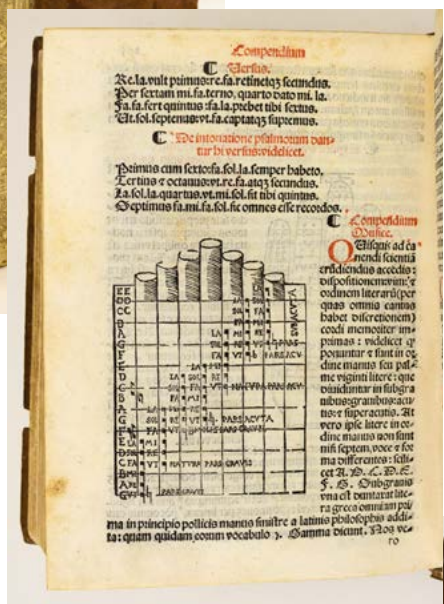 Compendium
Versus.
Re.la.vult primus:re.fa.retinetqz secundus.
Per sextam mi.fa.terno, quarto dato mi.la.
Fa.fa.fert quintus:fa.la.prebet tibi sextus.
Ut.sol.septenus:vt.fa.captatqz supremus.
De intonatione psalmorum dan-
tur hi versus:videlicet.
Primus cum sexto:fa.sol.la.semper habeto.
Tertius z octauus:vt.re.fa.atqz secundus.
La.sol.la.quartus.vt.mi.sol.fit tibi quintus.
Septimus fa.mi.fa.sol.sic omnes esse recordor.
Compendium
Musice.
Quisquis ad ca
nendi scientiã
erudiendus accedis:
dispositionem
ordinem literarũ(per
quas omnis cantus
habet discretionem)
cordi memoriter im-
primas: videlicet
ponuntur z sunt in or
dine manus seu pal-
me viginti litere: que
diuiduntur in subgra
uibus:grauibus:acu-
tis:z superacutis. At
vero ipse litere in or-
dine manus non sunt
nisi septem, voce z for
ma differentes: scili-
cet A. B. C. D. E.
F. G. Subgrauis
vna est duntaxat lite-
ra greca omnium pri
ma in principio pollicis manus sinistre a latinis philosophis addi-
ta: quam quidam eorum vocabulo Gamma dicunt.
EE
DD
CC
LA SOL
SOL FA
LA MI RE
PARS ACVTA
NATVRA PARS ACV
PARS ACVTA
NATVRA PARS GRAVIS
PARS GRAVIS